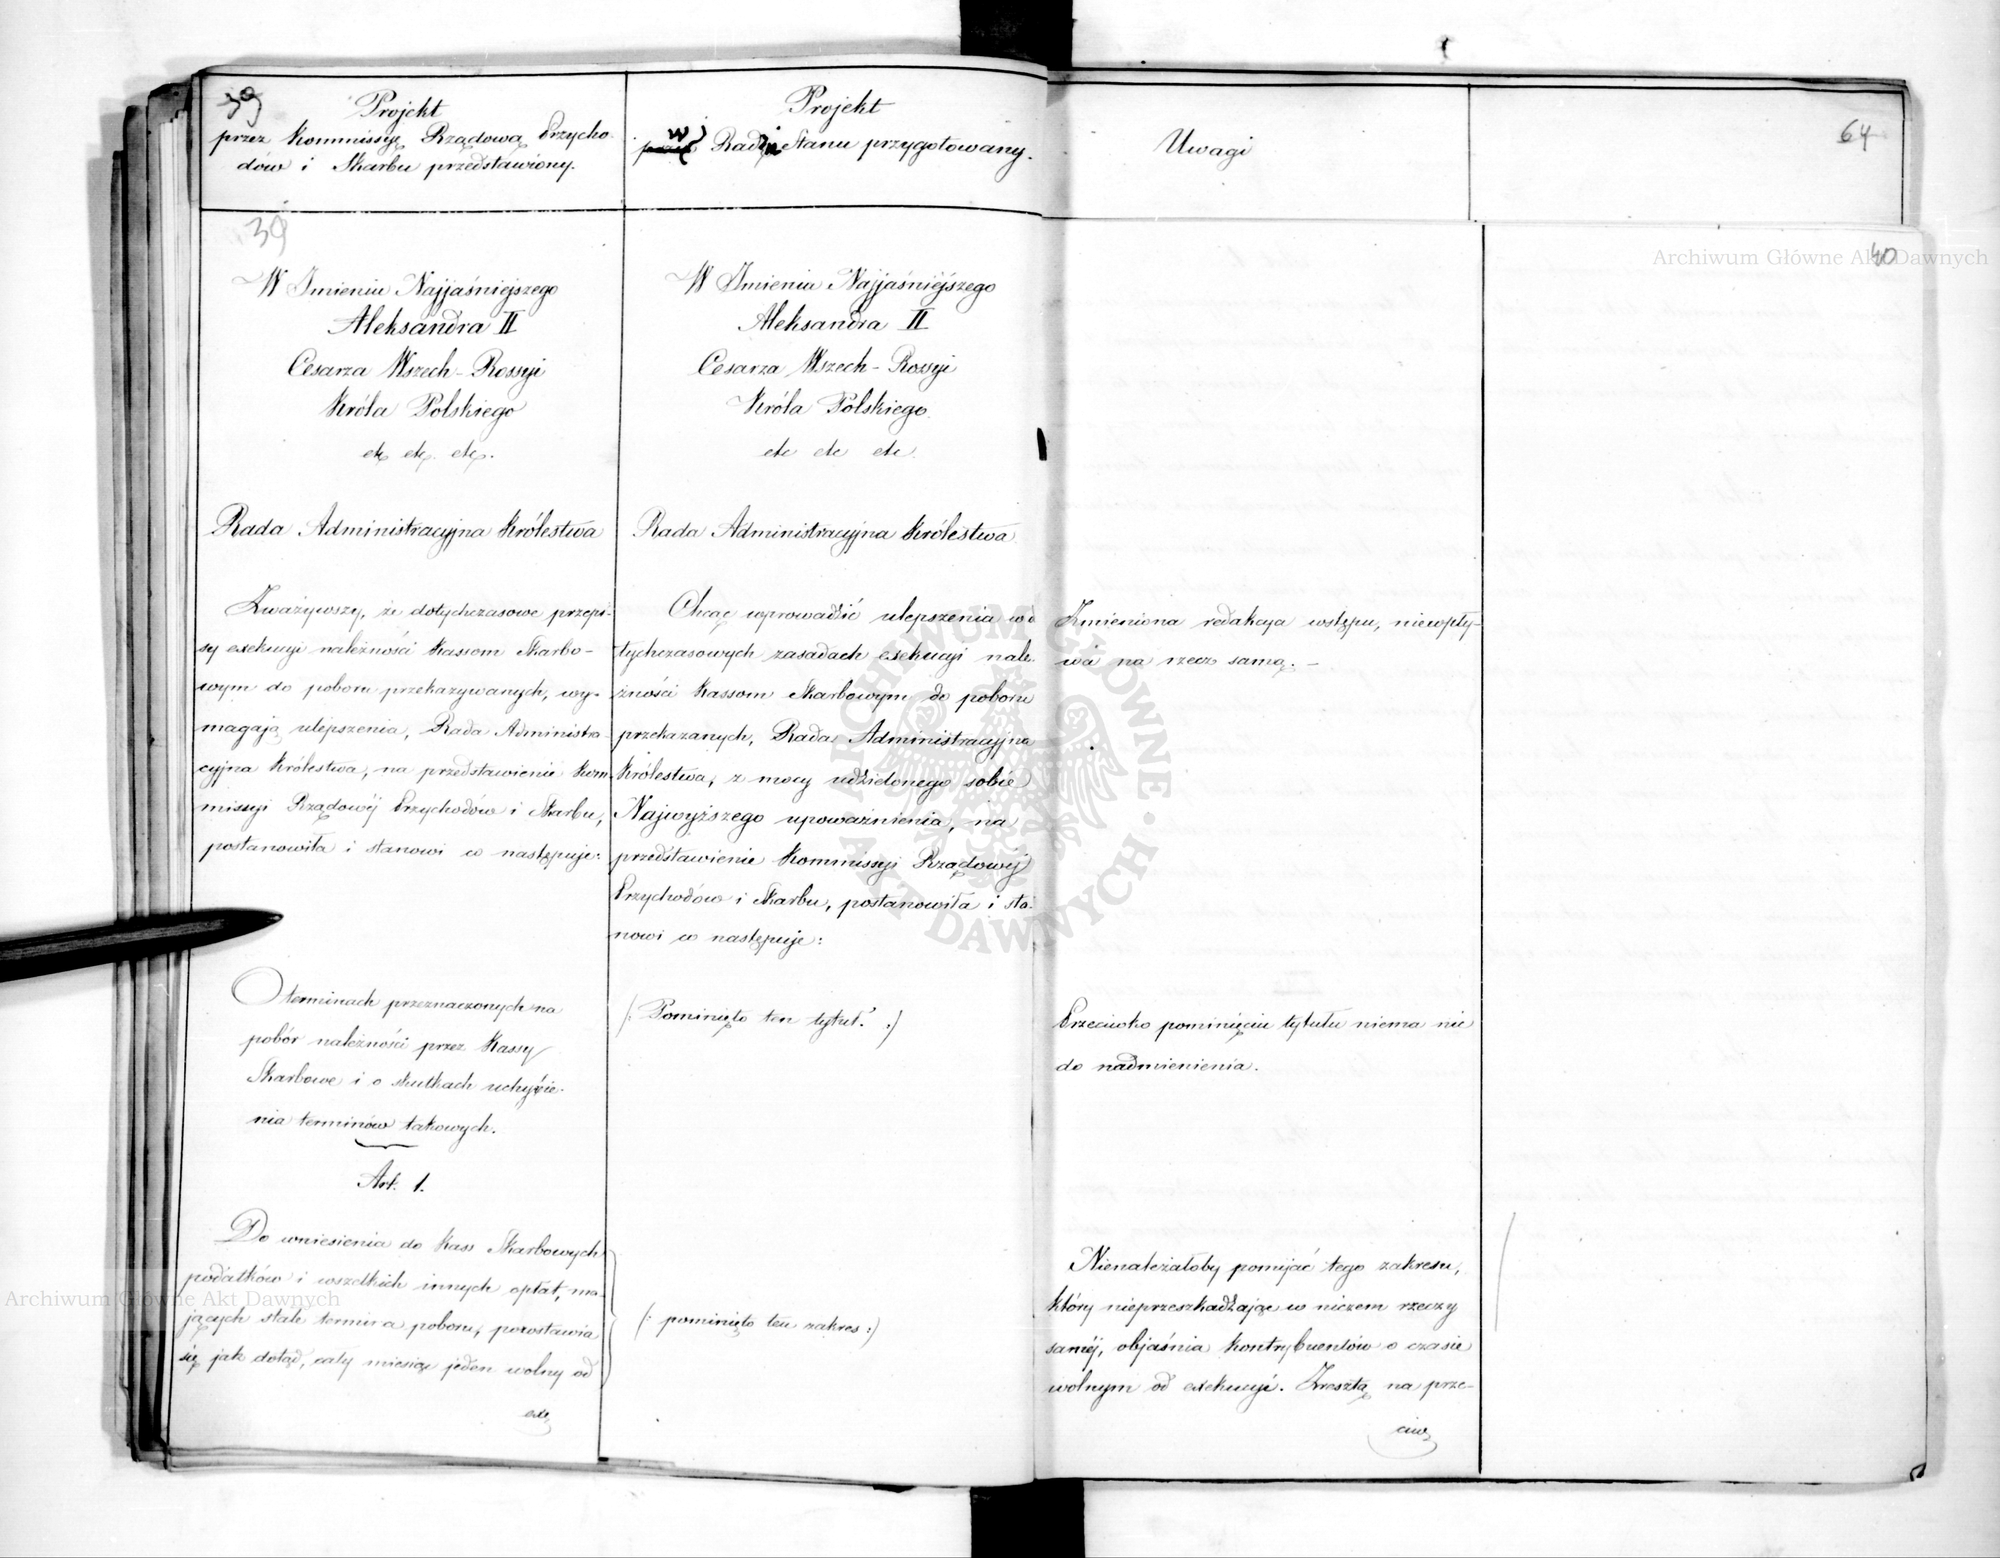 39
Projekt
przez Kommissyę Rządową Przycho-
dów i Skarbu przedstawiony.
Projekt
w Radzie Stanu przygotowany.
Uwagi
64
39
40
W Imieniu Najjaśniejszego
Aleksandra II
Cesarza Wszech-Rossyi
Króla Polskiego
etc etc. etc.
Rada Administracyjna Królestwa
Zważywszy, że dotychczasowe przepi-
sy exekucyi należności Kassom Skarbo-
wym do poboru przekazywanych, wy-
magają ulepszenia, Rada Administra-
cyjna Królestwa, na przedstawienie Kom-
missyi Rządowéj Przychodów i Skarbu,
postanowiła i stanowi co następuje:
O terminach przeznaczonych na
pobór należności przez Kassy
Skarbowe i o skutkach uchybie-
nia terminów takowych.
Art. 1.
Do wniesienia do Kass Skarbowych
podatków i wszelkich innych opłat, ma-
jących stałe termina poboru, pozostawia
się jak dotąd, cały miesiąc jeden wolny od
exe
W Imieniu Najjaśniejszego
Aleksandra II
Cesarza Wszech-Rossyi
Króla Polskiego
etc etc etc
Rada Administracyjna Królestwa
Chcąc wprowadzić ulepszenia w do
tychczasowych zasadach exekucyi nale-
żności Kassom Skarbowym do poboru
przekazanych, Rada Administracyjna
Królestwa, z mocy udzielonego sobie
Najwyższego upoważnienia, na
przedstawienie Kommissyi Rządowéj
Przychodów i Skarbu, postanowiła i sta-
nowi co następuje:
/: Pominięto ten tytuł. :/
/: pominięto ten zakres :/
Zmieniona redakcya wstępu, niewpły-
wa na rzecz samą. –
Przeciwko pominięciu tytułu niema nic
do nadmienienia.
Nienależałoby pomijać tego zakresu,
który nieprzeszkadzając w niczem rzeczy
saméj, objaśnia Kontrybuentów o czasie
wolnym od exekucyi. Zresztą na prze-
ciw
Archiwum Główne Akt Dawnych
Archiwum Główne Akt Dawnych
ARCHIWUM GŁÓWNE AKT DAWNYCH